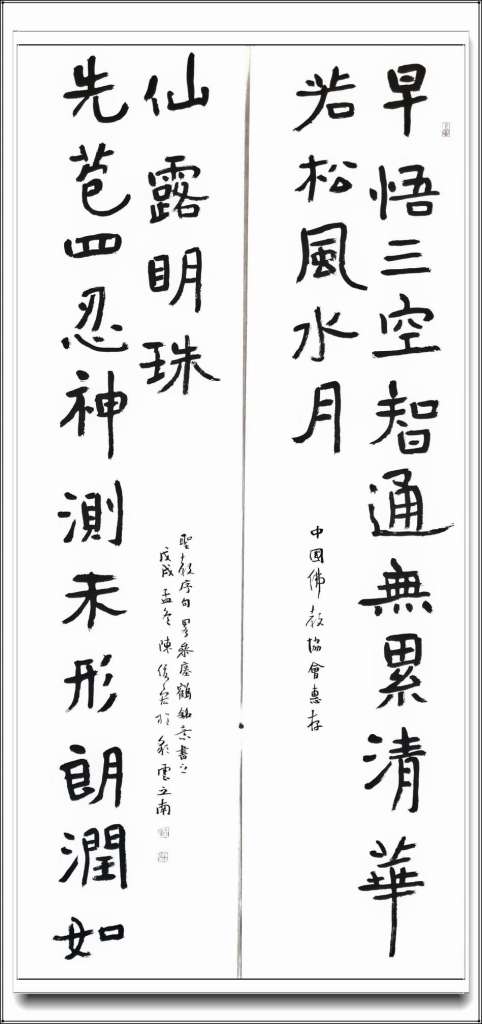 早悟三空智通無累清華
若松風水月
中國佛教協會惠存
先苞四忍神測未形朗潤如
仙露明珠
聖教序句畧參瘞鶴銘意書之
戊戌孟冬陳於彩雲之南